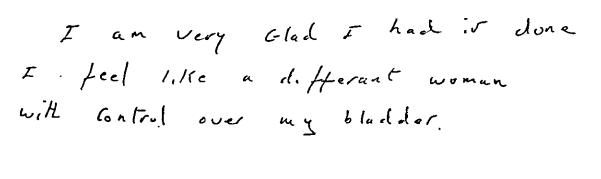 I am very Glad I had it done
I feel like a differant woman
with control over my bladder.